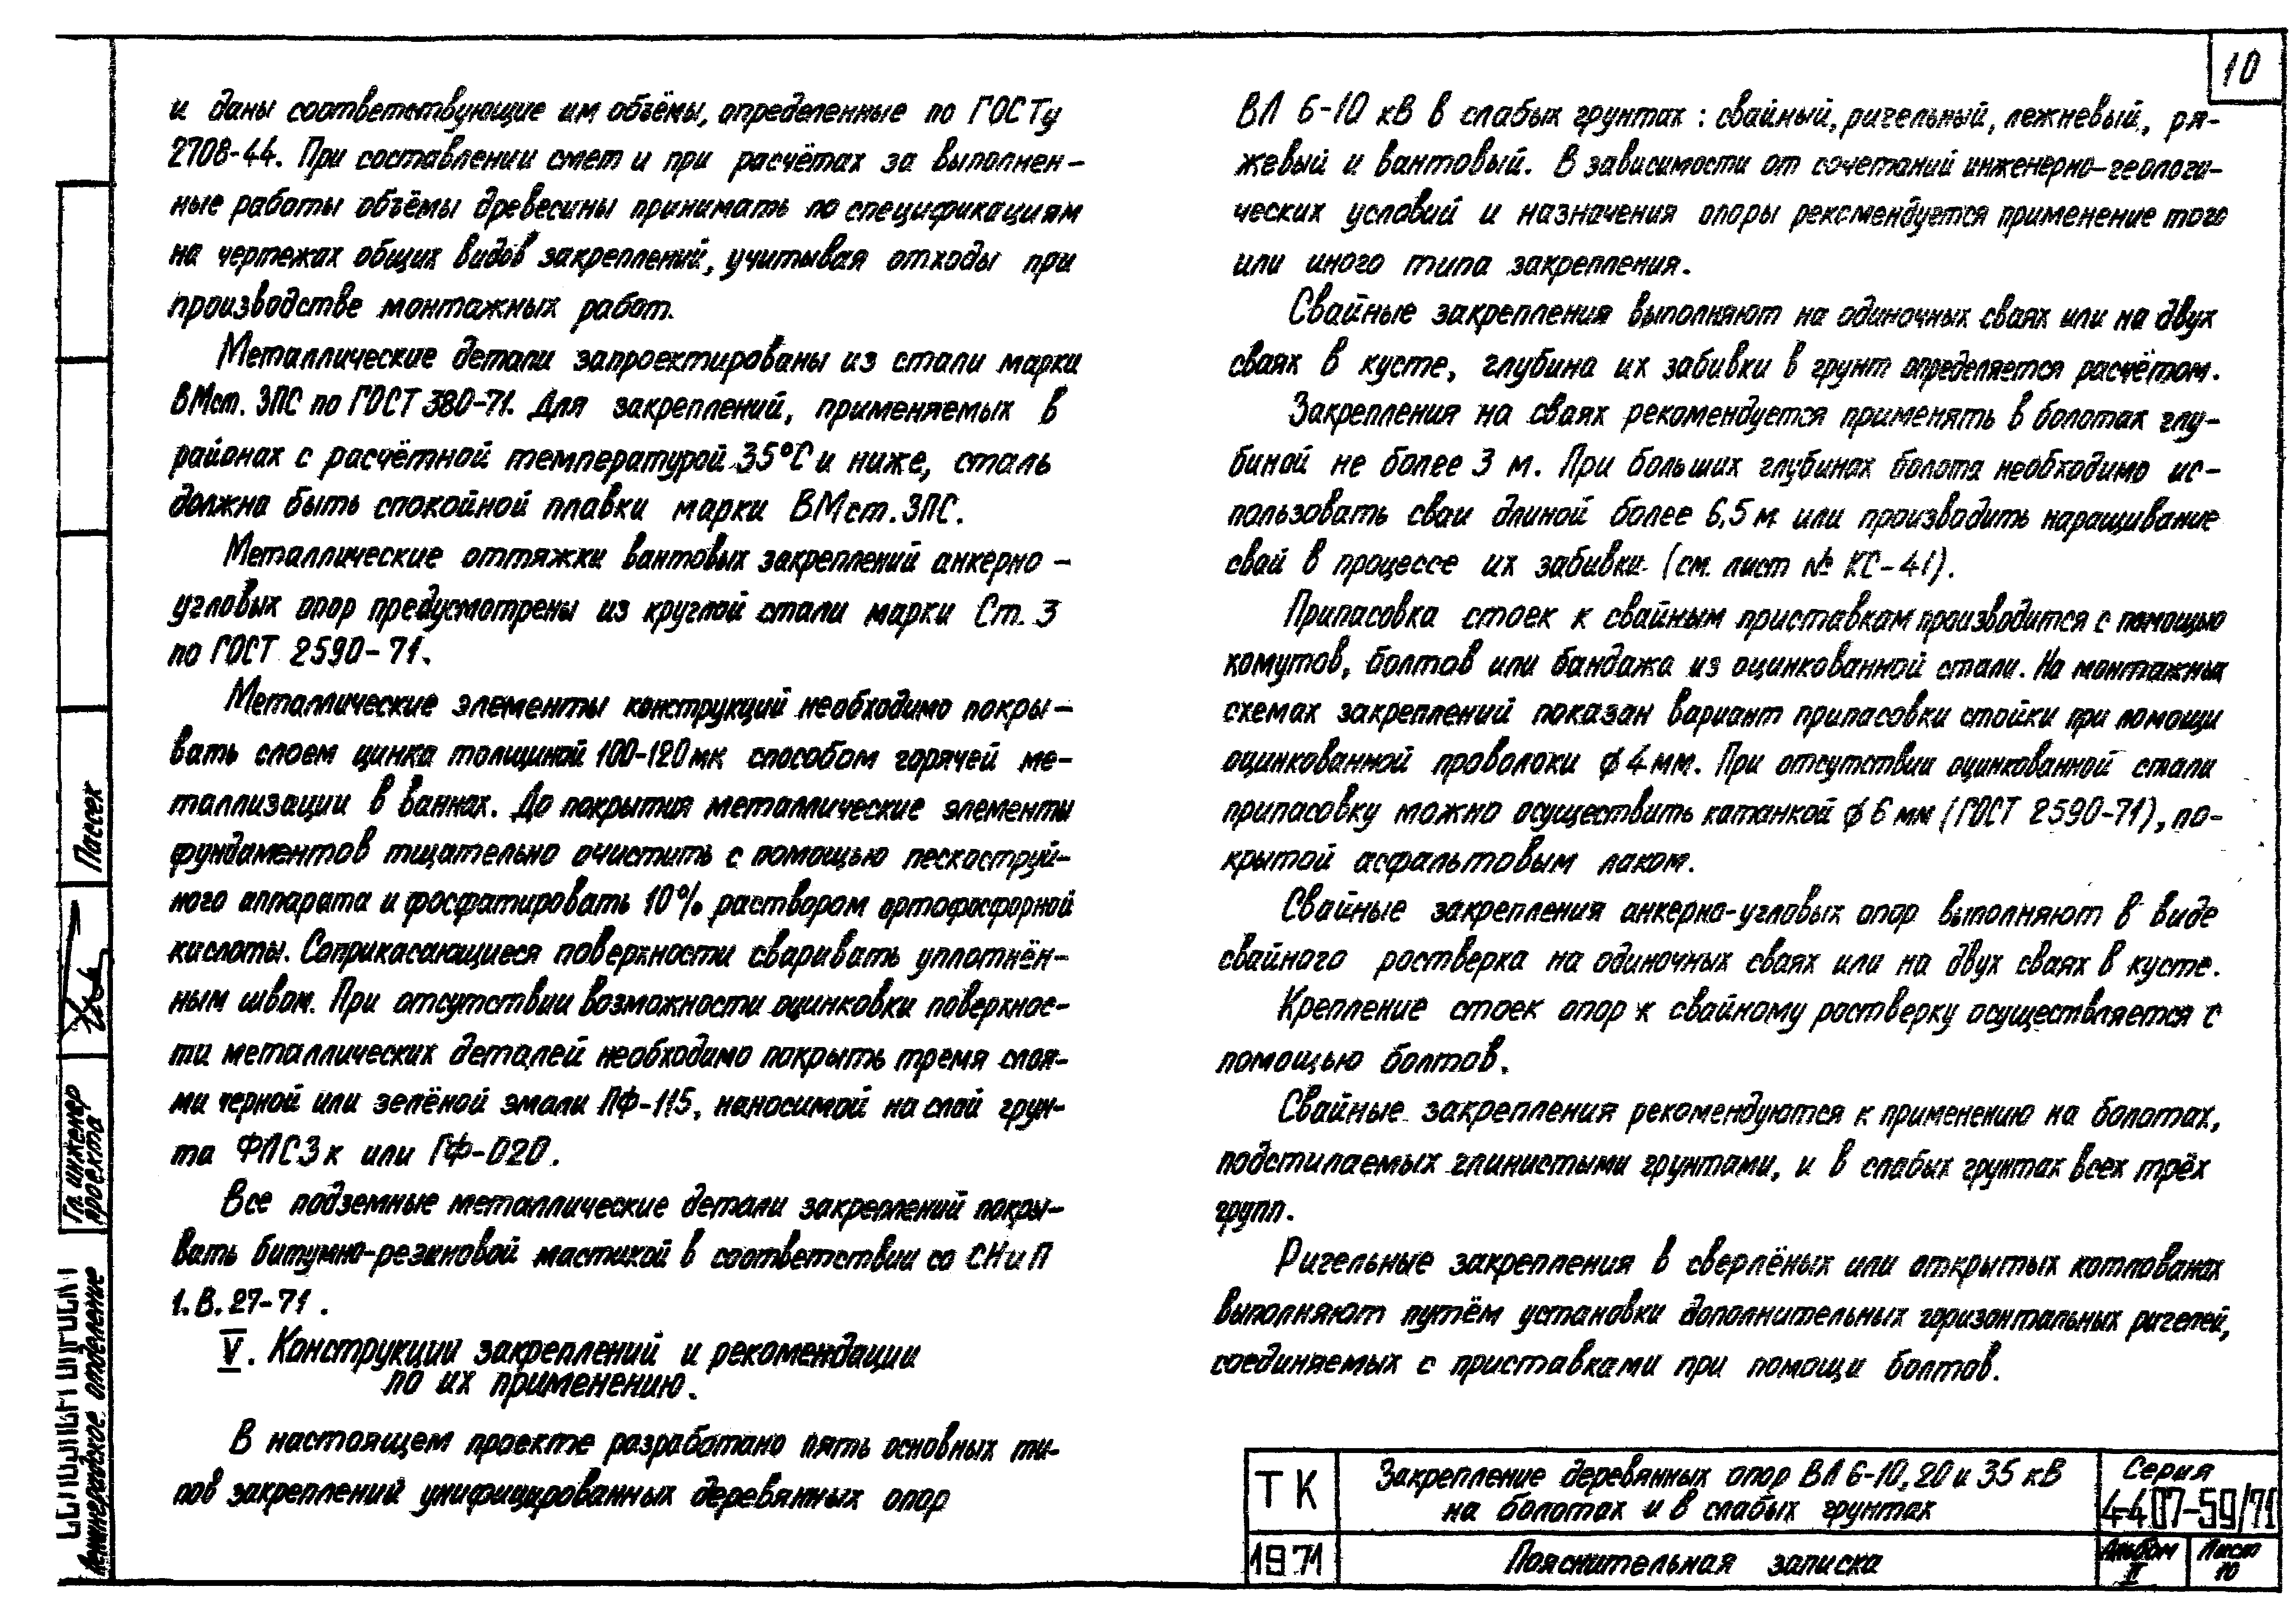 10
и даны соответствующие им объёмы, определенные по ГОСТу
2708-44. При составлении смет и при расчётах за выполнен-
ные работы объёмы древесины принимать по спецификациям
на чертежах общих видов закреплений, учитывая отходы при
производстве монтажных работ.
Металлические детали запроектированы из стали марки
ВМст. 3ПС по ГОСТ 380-71. Для закреплений, применяемых в
районах с расчётной температурой 35°С и ниже, сталь
должна быть спокойной плавки марки ВМст. 3ПС.
Металлические оттяжки вантовых закреплений анкерно-
угловых опор предусмотрены из круглой стали марки Ст. 3
по ГОСТ 2590-71.
Металлические элементы конструкций необходимо покры-
вать слоем цинка толщиной 100-120 мк способом горячей ме-
таллизации в ваннах. До покрытия металлические элементы
фундаментов тщательно очистить с помощью пескоструй-
ного аппарата и фосфатировать 10% раствором ортофосфорной
кислоты. Соприкасающиеся поверхности сваривать уплотнён-
ным швом. При отсутствии возможности оцинковки поверхнос-
ти металлических деталей необходимо покрыть тремя слоя-
ми черной или зелёной эмали ПФ-115, наносимой на слой грун-
та ФЛС3к или ГФ-020.
Все подземные металлические детали закреплений покры-
вать битумно-резиновой мастикой в соответствии со СНиП
1.В.27-71.
V. Конструкции закреплений и рекомендации
по их применению.
В настоящем проекте разработано пять основных ти-
пов закреплений унифицированных деревянных опор
ВЛ 6-10 кВ в слабых грунтах: свайный, ригельный, лежневый, ря-
жевый и вантовый. В зависимости от сочетаний инженерно-геологи-
ческих условий и назначения опоры рекомендуется применение того
или иного типа закрепления.
Свайные закрепления выполняют на одиночных сваях или на двух
сваях в кусте, глубина их забивки в грунт определяется расчётом.
Закрепления на сваях рекомендуется применять в болотах глу-
биной не более 3 м. При больших глубинах болота необходимо ис-
пользовать сваи длиной более 6,5 м или производить наращивание
свай в процессе их забивки (см. лист № КС-41).
Припасовка стоек к свайным приставкам производится с помощью
хомутов, болтов или бандажа из оцинкованной стали. На монтажных
схемах закреплений показан вариант припасовки стойки при помощи
оцинкованной проволоки ф 4 мм. При отсутствии оцинкованной стали
припасовку можно осуществить катанкой ф 6 мм (ГОСТ 2590-71), по-
крытой асфальтовым лаком.
Свайные закрепления анкерно-угловых опор выполняют в виде
свайного ростверка на одиночных сваях или на двух сваях в кусте.
Крепление стоек опор к свайному ростверку осуществляется с
помощью болтов.
Свайные закрепления рекомендуются к применению на болотах,
подстилаемых глинистыми грунтами, и в слабых грунтах всех трёх
групп.
Ригельные закрепления в сверлёных или открытых котлованах
выполняют путём установки дополнительных горизонтальных ригелей,
соединяемых с приставками при помощи болтов.
ТК
Закрепление деревянных опор ВЛ 6-10, 20 и 35 кВ
на болотах и в слабых грунтах
Серия
4407-59/71
1971
Пояснительная записка
Альбом
II
Лист
10
Пассек
Гл. инженер
проекта
Ленинградское отделение